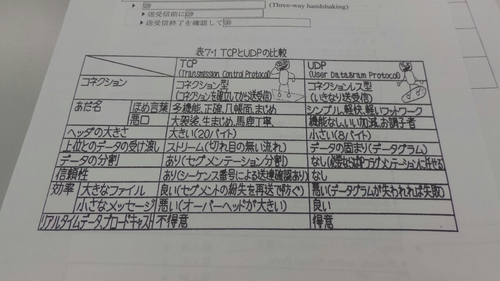 (Three-way handshaking)
送受信前に
送受信終了を確認して
表7-1 TCPとUDPの比較
TCP (Transmission Control Protocol) UDP (User Datagram Protocol)
コネクション コネクション型 (コネクションを確立してから送受信) コネクションレス型 (いきなり送受信)
あだ名 ほめ言葉 多機能、正確、几帳面、まじめ シンプル、軽快、軽いフットワーク
悪口 大袈裟、生まじめ、馬鹿丁寧 機能なし、いい加減、お調子者
ヘッダの大きさ 大きい(20バイト) 小さい(8バイト)
上位とのデータの受け渡し ストリーム(切れ目の無い流れ) データの固まり(データグラム)
データの分割 あり(セグメンテーション分割) なし(必要ならばIPフラグメンテーションに任せる)
信頼性 あり(シーケンス番号による送達確認あり) なし
効率 大きなファイル 良い(セグメントの紛失を再送で防ぐ) 悪い(データグラムが失われれば失敗)
小さなメッセージ 悪い(オーバーヘッドが大きい) 良い
リアルタイムデータ、ブロードキャスト 不得意 得意